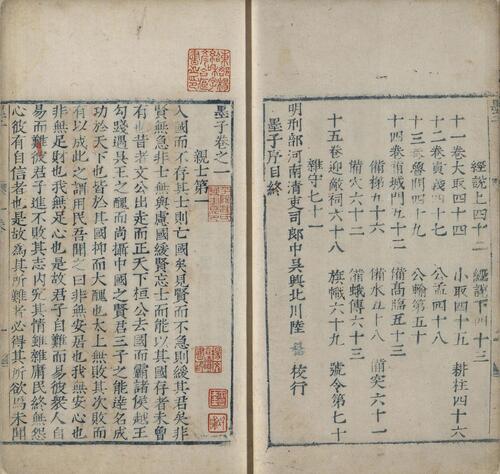 經說上四十二　經說下四十三
十一卷大取四十四　小取四十五　耕柱四十六
十二卷貴義四十七　公孟四十八
十三卷魯問四十九　公輸第五十
十四卷備城門五十二　備高臨五十三
備梯五十六　備水五十八　備突六十一
備穴六十二　備蛾傅六十三
十五卷迎敵祠六十八　旗幟六十九　號令第七十
雜守七十一
明刑部河南清吏司郎中吳興北川陸　校行
墨子序目終
墨子卷之一
親士第一
入國而不存其士則亡國矣見賢而不急則緩其君矣非
賢無急非士無與慮國緩賢忘士而能以其國存者未曾
有也昔者文公出走而正天下桓公去國而霸諸侯越王
勾踐遇吳王之醜而尚攝中國之賢君三子之能達名成
功於天下也皆於其國抑而大醜也太上無敗其次敗而
有以成此之謂用民吾聞之曰非無安居也我無安心也
非無足財也我無足心也是故君子自難而易彼衆人自
易而難彼君子進不敗其志內究其情雖雜庸民終無怨
心彼有自信者也是故為其所難者必得其所欲焉未聞